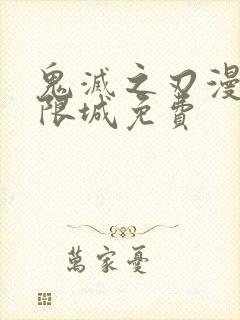 鬼滅之刃漫
限城免費
萬家憂